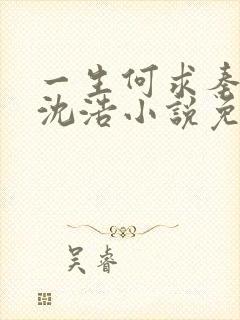 一生何求秦
沈浩小說免
吴睿